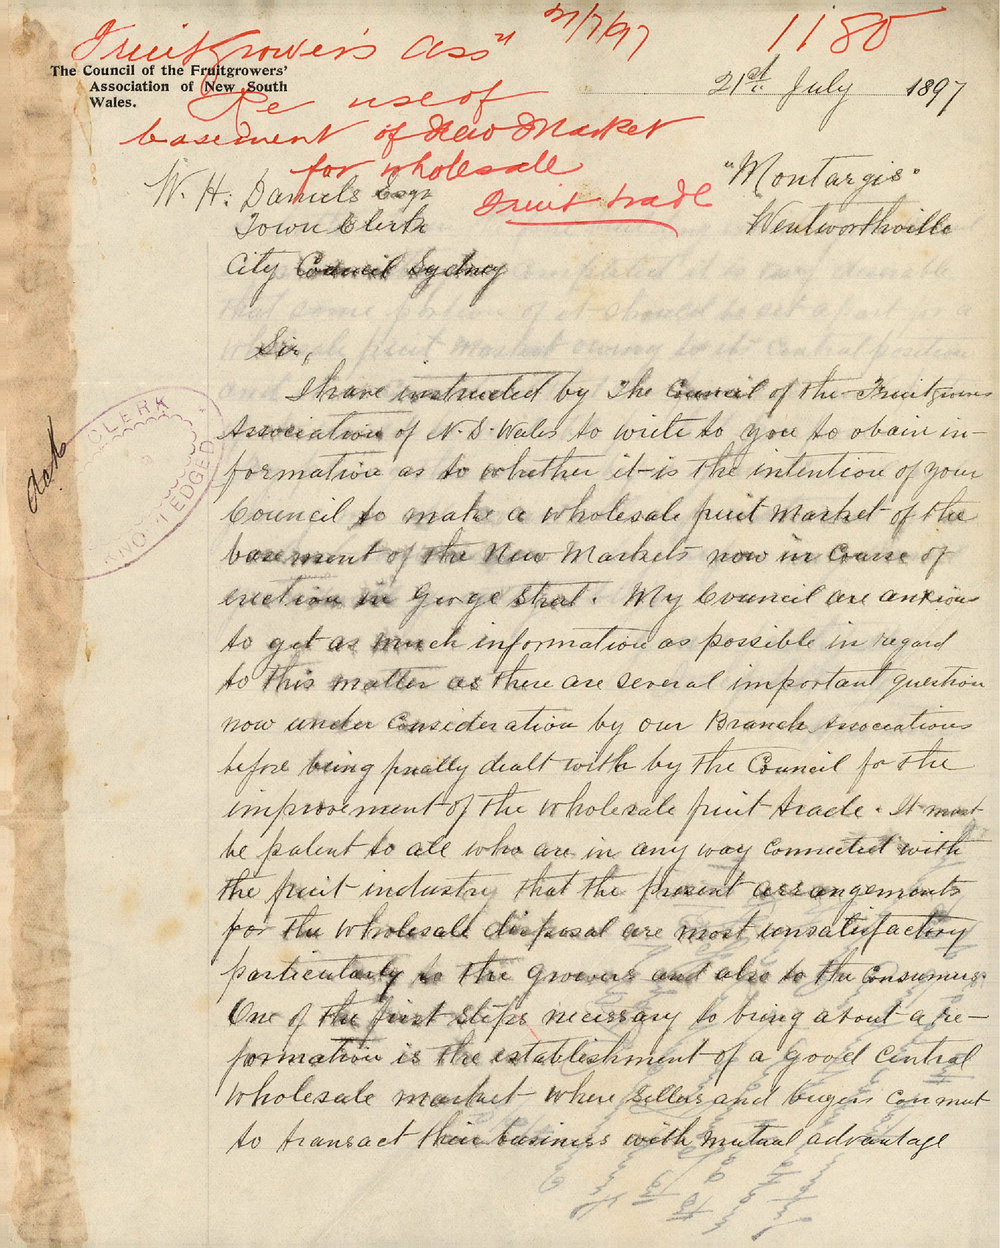 Fruitgrowers Assn 21/7/97 1180
The Council of the Fruitgrowers'
Association of New South
Wales.
21st July 1897
Re use of
basement of New Market
for wholesale
Fruit trade
"Montargis"
Wentworthville
W. H. Daniels Esqr
Town Clerk
City Council Sydney
Sir,
I have instructed by The Council of the Fruitgrowers
Association of N. S. Wales to write to you to obain in-
formation as to whether it is the intention of your
Council to make a wholesale fruit market of the
basement of the New Markets now in Course of
erection in George Street. My Council are anxious
to get as much information as possible in regard
to this matter as there are several important question
now under Consideration by our Branch Associations
before being finally dealt with by the Council for the
improvement of the wholesale fruit trade. It must
be patent to all who are in any way Connected with
the fruit industry that the present arrangements
for the wholesale disposal are most unsatisfactory
particularly to the growers and also to the Consumers.
One of the first steps necessary to bring about a re-
formation is the establishment of a good Central
wholesale market where sellers and buyers can meet
to transact their business with mutual advantage
CLERK
KNOWLEDGED